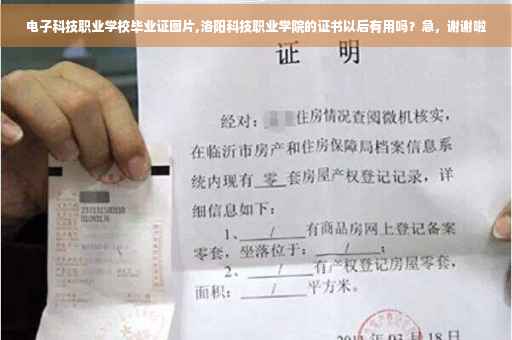 电子科技职业学校毕业证图片,洛阳科技职业学院的证书以后有用吗？急，谢谢啦
证 明
经对：住房情况查阅微机核实，
在临沂市房产和住房保障局档案信息系
统内现有 零 套房屋产权登记记录，详
细信息如下：
1、 / 有商品房网上登记备案
零套，坐落位于： / ；
2、 / 有产权登记房屋零套，
面积： / 平方米。
03 月 18 日